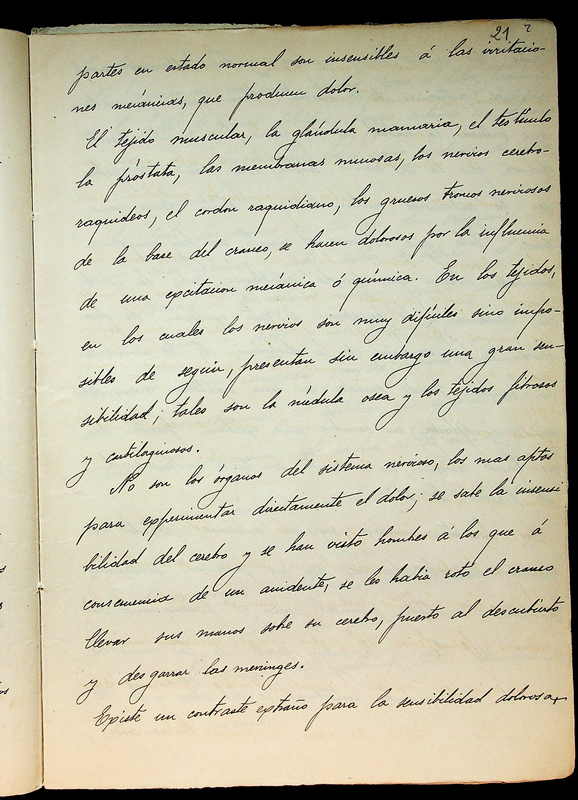 21
partes en estado normal son insensibles á las irritacio-
nes mecánicas, que producen dolor.
El tejido muscular, la glándula mamaria, el testículo
la próstata, las membranas mucosas, los nervios cerebro-
raquideos, el cordon raquidiano, los gruesos troncos nerviosos
de la base del craneo, se hacen dolorosos por la influencia
de una excitacion mecánica ó química. En los tejidos,
en los cuales los nervios son muy difíciles sino impo-
sibles de seguir, presentan sin embargo una gran sen-
sibilidad; tales son la médula osea y los tejidos fibrosos
y cartilaginosos.
No son los órganos del sistema nervioso, los mas aptos
para experimentar directamente el dolor; se sabe la insensi
bilidad del cerebro y se han visto hombres á los que á
consecuencia de un accidente, se les habia roto el craneo
llevar sus manos sobre su cerebro, puesto al descubierto
y desgarrar las meninges.
Existe un contraste extraño para la sensibilidad dolorosa,